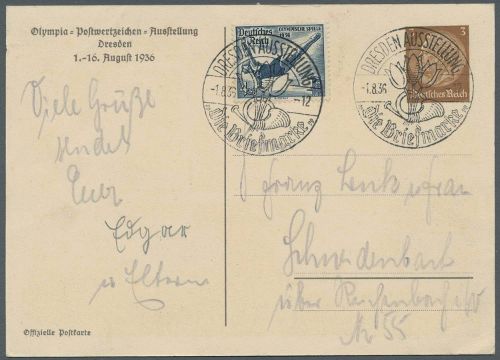 Olympia-Postwertzeichen-Ausstellung
Dresden
1.-16. August 1936
Viele Grüße
sendet
Euer
Edgar
u Eltern
Offizielle Postkarte
Deutsches Reich
OLYMPISCHE SPIELE
1936
DRESDEN AUSSTELLUNG
-1.8.36
-12
„Die Briefmarke"
3
Deutsches Reich
DRESDEN AUSSTELLUNG
-1.8.36
„Die Briefmarke"
Franz Lenk u Frau
über Reichenbach
Nr 55